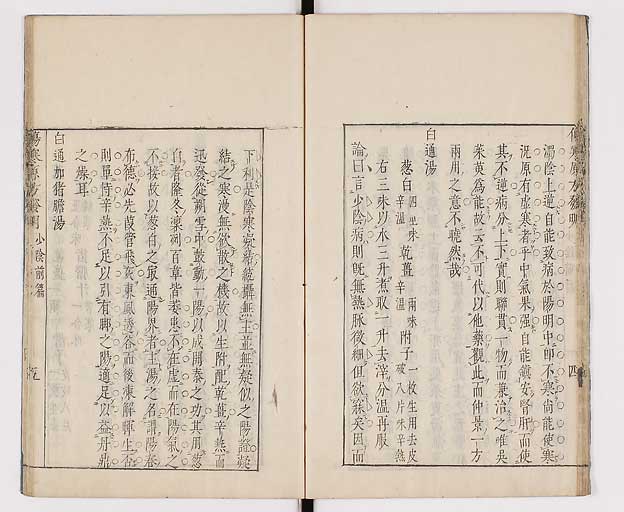 濁陰上逆自能致病於陽明中即不寒尚能使寒
況原有虛寒者乎中氣果强自能鎮安腎肝而使
其不逆病分上下實則聯貫一物而兼治之唯吳
茱萸為能故云不可代以他藥觀此而仲景一方
兩用之意不曉然哉
白通湯
葱白四莖味辛溫 乾薑一兩味辛溫 附子一枚生用去皮破八片味辛熱
右三味以水三升煮取一升去滓分溫再服
論曰言少陰病則既無熱脈微細但欲寐矣因而
四
下利是陰寒凝結統攝無主並無疑似之陽證凝
結之寒漫無欲散之機故以生附配乾薑辛熱而
迅發從朔雪中鼓動一陽以成開泰之功其用葱
白者隆冬凜冽百草皆萎患不在虛而在陽氣之
不接故以葱白之最通陽界者主湯之名謂陽春
布德必先葭管飛灰東風透谷而後凍解暉生否
則單恃辛熱不足以引有鄉之陽適足以益丹鼎
之燥耳
白通加猪膽湯
傷寒原方發明 少陰前篇 五